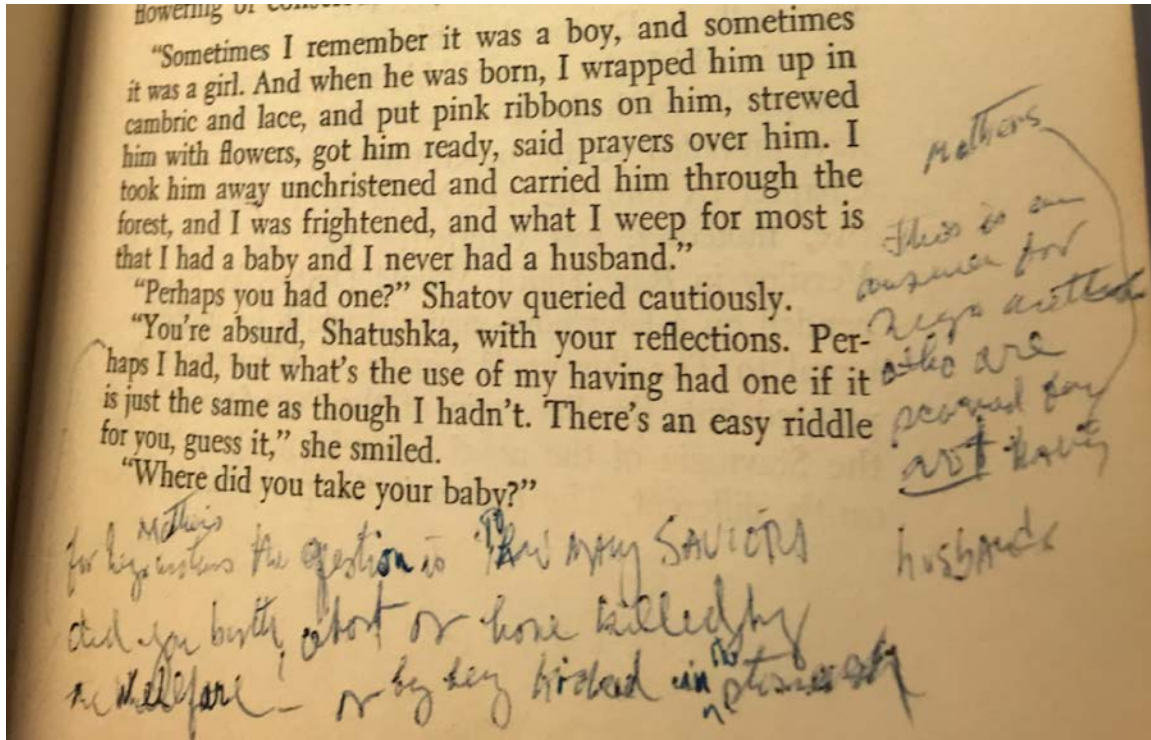 flowering of
“Sometimes I remember it was a boy, and sometimes
it was a girl. And when he was born, I wrapped him up in
cambric and lace, and put pink ribbons on him, strewed
him with flowers, got him ready, said prayers over him. I
took him away unchristened and carried him through the
forest, and I was frightened, and what I weep for most is
that I had a baby and I never had a husband.”
“Perhaps you had one?” Shatov queried cautiously.
“You're absurd, Shatushka, with your reflections. Per-
haps I had, but what's the use of my having had one if it
is just the same as though I hadn't. There's an easy riddle
for you, guess it,” she smiled.
“Where did you take your baby?”
Mothers
This is an
answer for
who are
for
not having
husbands
Mothers
for the question is How MANY SAVIORS
did you birth, abort or have killed by
or by being in